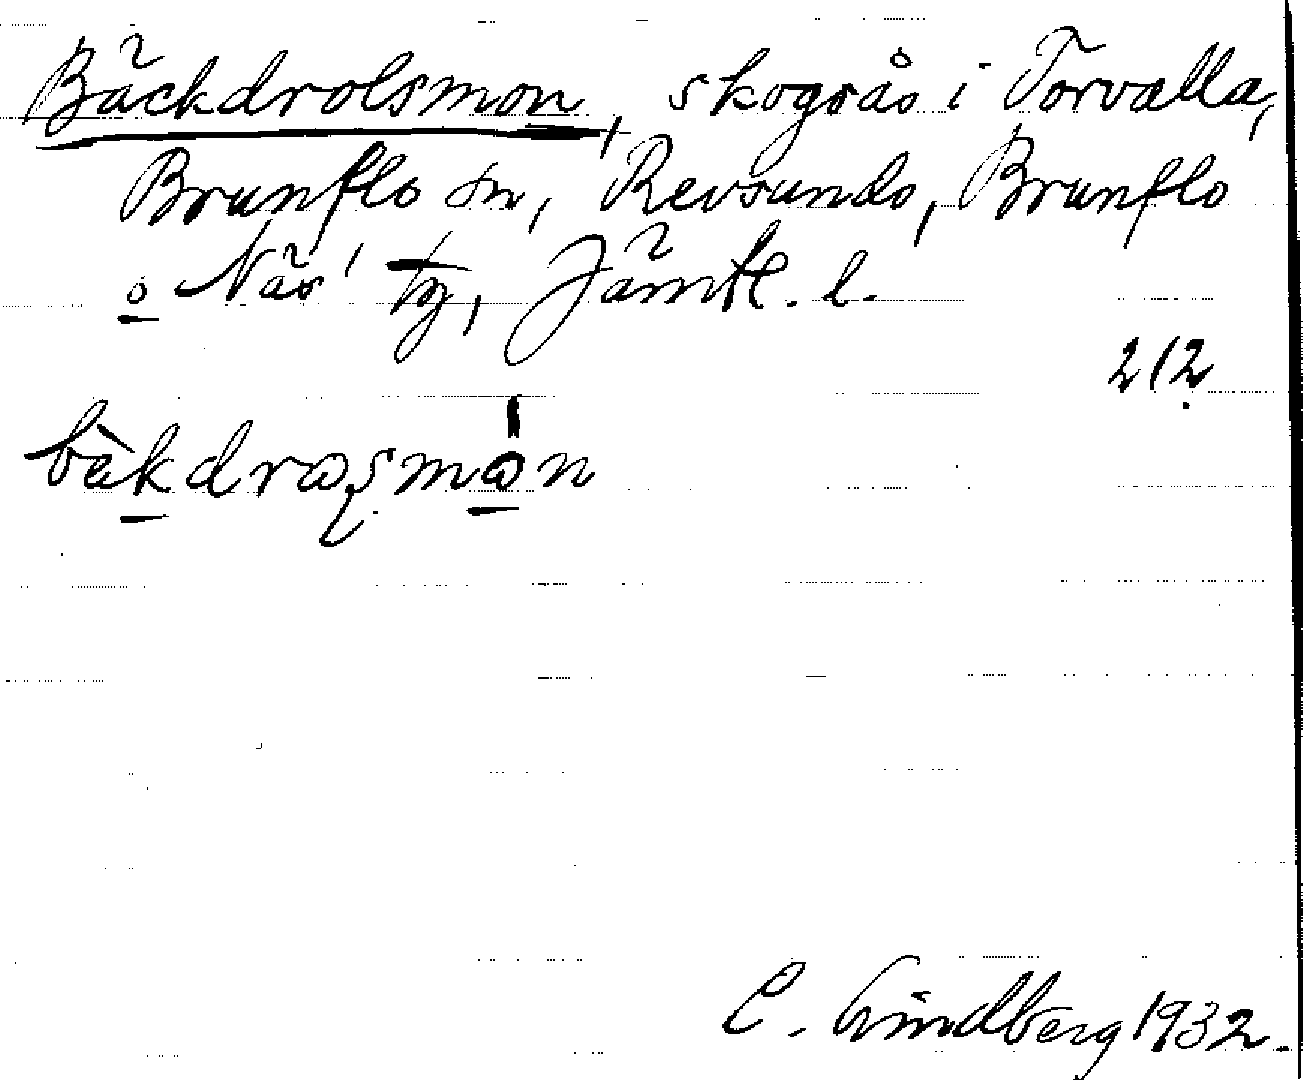 Bäckdrolsmon, skogsås i Torvalla,
Brunflo sn, Revsunds, Brunflo
o Näs' tg, Jämtl. l.
212
C. Lindberg 1932.